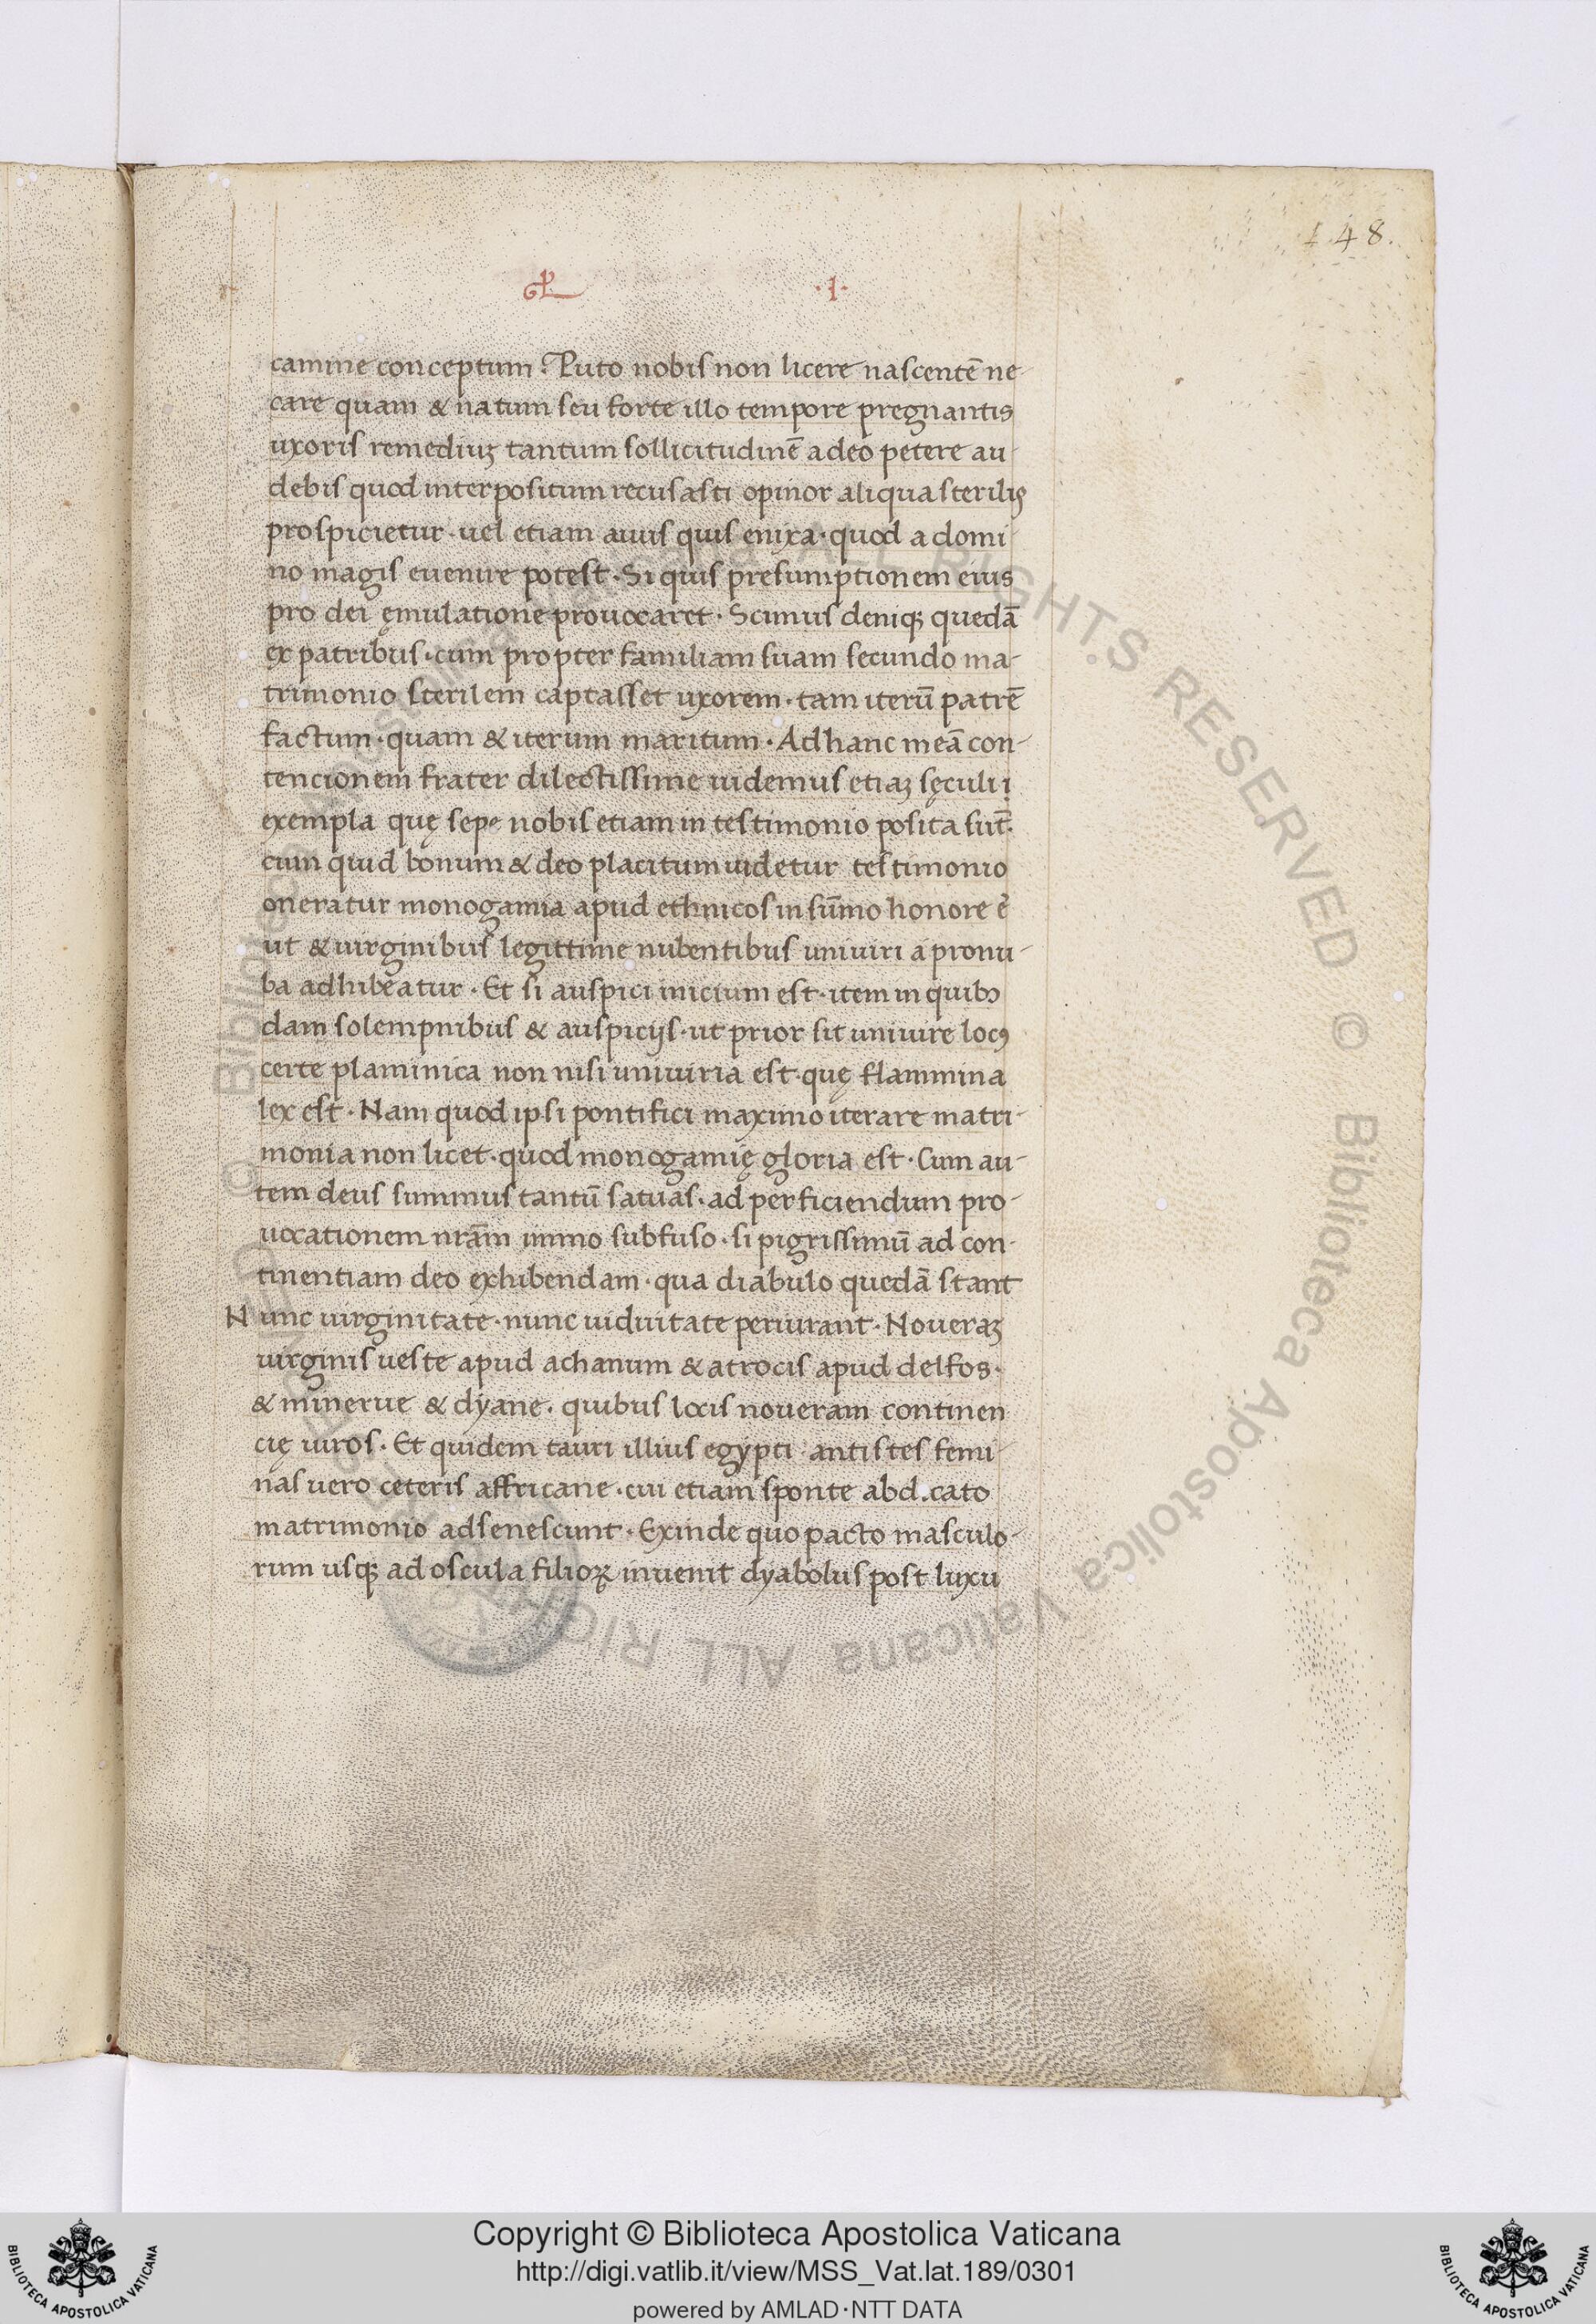 148.
·I·
camine conceptum. Puto nobis non licere nascentē ne-
care quam & natum seu forte illo tempore pregnantis
uxoris remediuꝫ tantum sollicitudinē adeo petere au-
debis quod interpositum recusasti opinor aliqua sterilis
prospicietur · uel etiam auuis quis enixa · quod a domi-
no magis euenire potest · Si quis presumptionem eius
pro dei ęmulatione prouocaret · Scimus deniqꝫ quedā
ex patribus · cum propter familiam suam secundo ma-
trimonio sterilem captasset uxorem · tam iterū patrē
factum · quam & iterum maritum · Ad hanc meā con-
tencionem frater dilectissime uidemus etiaꝫ sęculi i
exempla quę sepe nobis etiam in testimonio posita sūt ·
cum quid bonum & deo placitum uidetur testimonio
oneratur monogamia apud ethnicos in sūmo honore ē
ut & uirginibus legittime nubentibus uniuiri a pronu-
ba adhibeatur · Et si auspici inicium est · item in quibꝫ
dam solempnibus & auspicijs · ut prior sit uniuire locꝰ
certe plaminica non nisi uniuiria est · quę flammina
lex est · Nam quod ipsi pontifici maximo iterare matri-
monia non licet · quod monogamię gloria est · Cum au-
tem deus summus tantū satuas · ad perficiendum pro-
uocationem nr̄am immo subfuso · si pigrissimū ad con-
tinentiam deo exhibendam · qua diabulo quedā stant
Nunc uirginitate · nunc uiduitate periurant · Noueraꝫ
uirginis ueste apud achanum & atrocis apud delfos ·
& minerue & dyane · quibus locis noueram continen
cię uiros · Et quidem tauri illius egypti · antistes femi-
nas uero ceteris affricane · cui etiam sponte abd.cato
matrimonio adsenescunt · Exinde quo pacto masculo-
rum usqꝫ ad oscula filioꝝ inuenit dyabolus post luxu
Copyright © Biblioteca Apostolica Vaticana
http://digi.vatlib.it/view/MSS_Vat.lat.189/0301
powered by AMLAD·NTT DATA
BIBLIOTECA APOSTOLICA VATICANA
BIBLIOTECA APOSTOLICA VATICANA